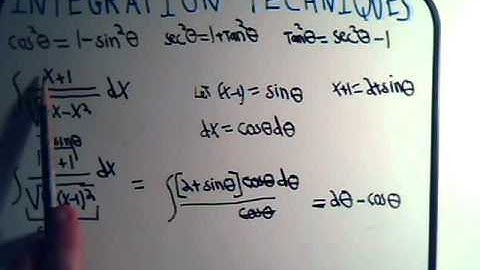 INTEGRATION TECHNIQUES
cos²θ = 1 - sin²θ sec²θ = 1 + tan²θ Tan²θ = sec²θ - 1
∫ x+1 / √ x - x² dx Let (x-1) = sinθ x+1 = 2 + sinθ
dx = cosθdθ
∫ sinθ +1 / √ (x-1)² dx = ∫ [2 + sinθ] cosθ dθ / cosθ = 2θ - cosθ